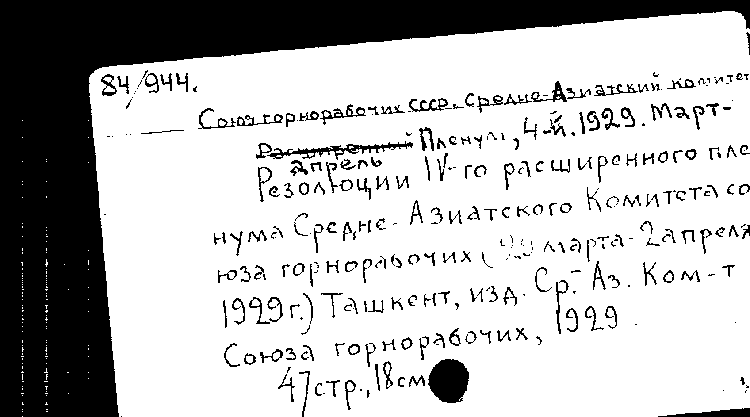 84/944.
Союз горнорабочих СССР. Средне-Азиатский комитет
Расширенный Пленум, 4-й. 1929. Март-
апрель
Резолюции IV-го расширенного пле
нума Средне-Азиатского Комитета со
юза горнорабочих (29 марта-2 апреля
1929 г.) Ташкент, изд. Ср.-Аз. Ком-т
Союза горнорабочих, 1929.
47 стр., 18 см